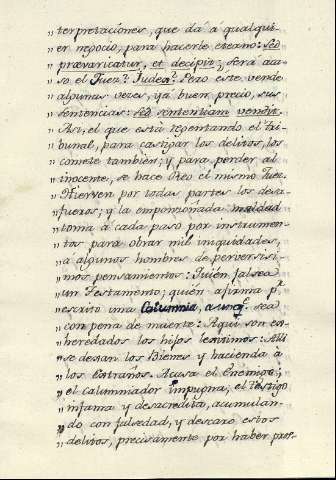 „terpretaciones, que dá á qualqui-
„er negocio, para hacerle eterno: Sed
„prævaricatur, et decipit; Será aca-
„so el Juez? Judex? Pero este vende
„algunas veces, yá buen precio, sus
„sentencias: Sed sententiam vendit.
„Asi, el que está repentando el tri-
„bunal, para castigar los delitos, los
„comete tambien; y para perder al
„inocente, se hace Reo el mismo Juez.
„Hierven por todas partes los desa-
„fueros; y la emponzoñada maldad
„toma á cada paso por instrumen-
„tos para obrar mil iniquidades,
„a algunos hombres de perversisi-
„mos pensamientos: Quién falsea
„un Testamento; quién afirma pr
„escrito una Calumnia, a unq̃ sea
„con pena de muerte: Aqui son es-
„heredados los hijos lexitimos: Alli
„se dexan los Bienes y hacienda à
„los Extraños. Acusa el Enemigo;
„el calumniador impugna; el Testigo
„infama y desacredita, acumulan-
„do con falsedad, y descaro estos
„delitos, precisamente por haber pres-